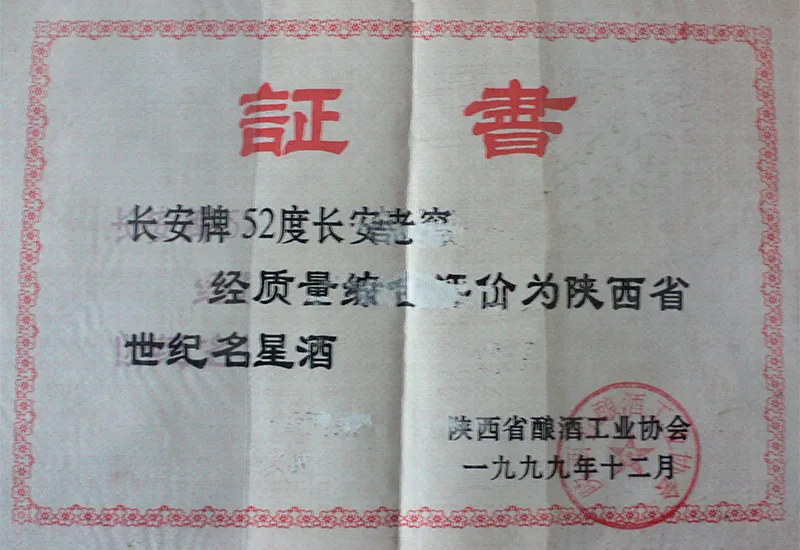 証書
长安牌52度长安老窖
经质量综合评价为陕西省
世纪名星酒
陕西省酿酒工业协会
一九九九年十二月